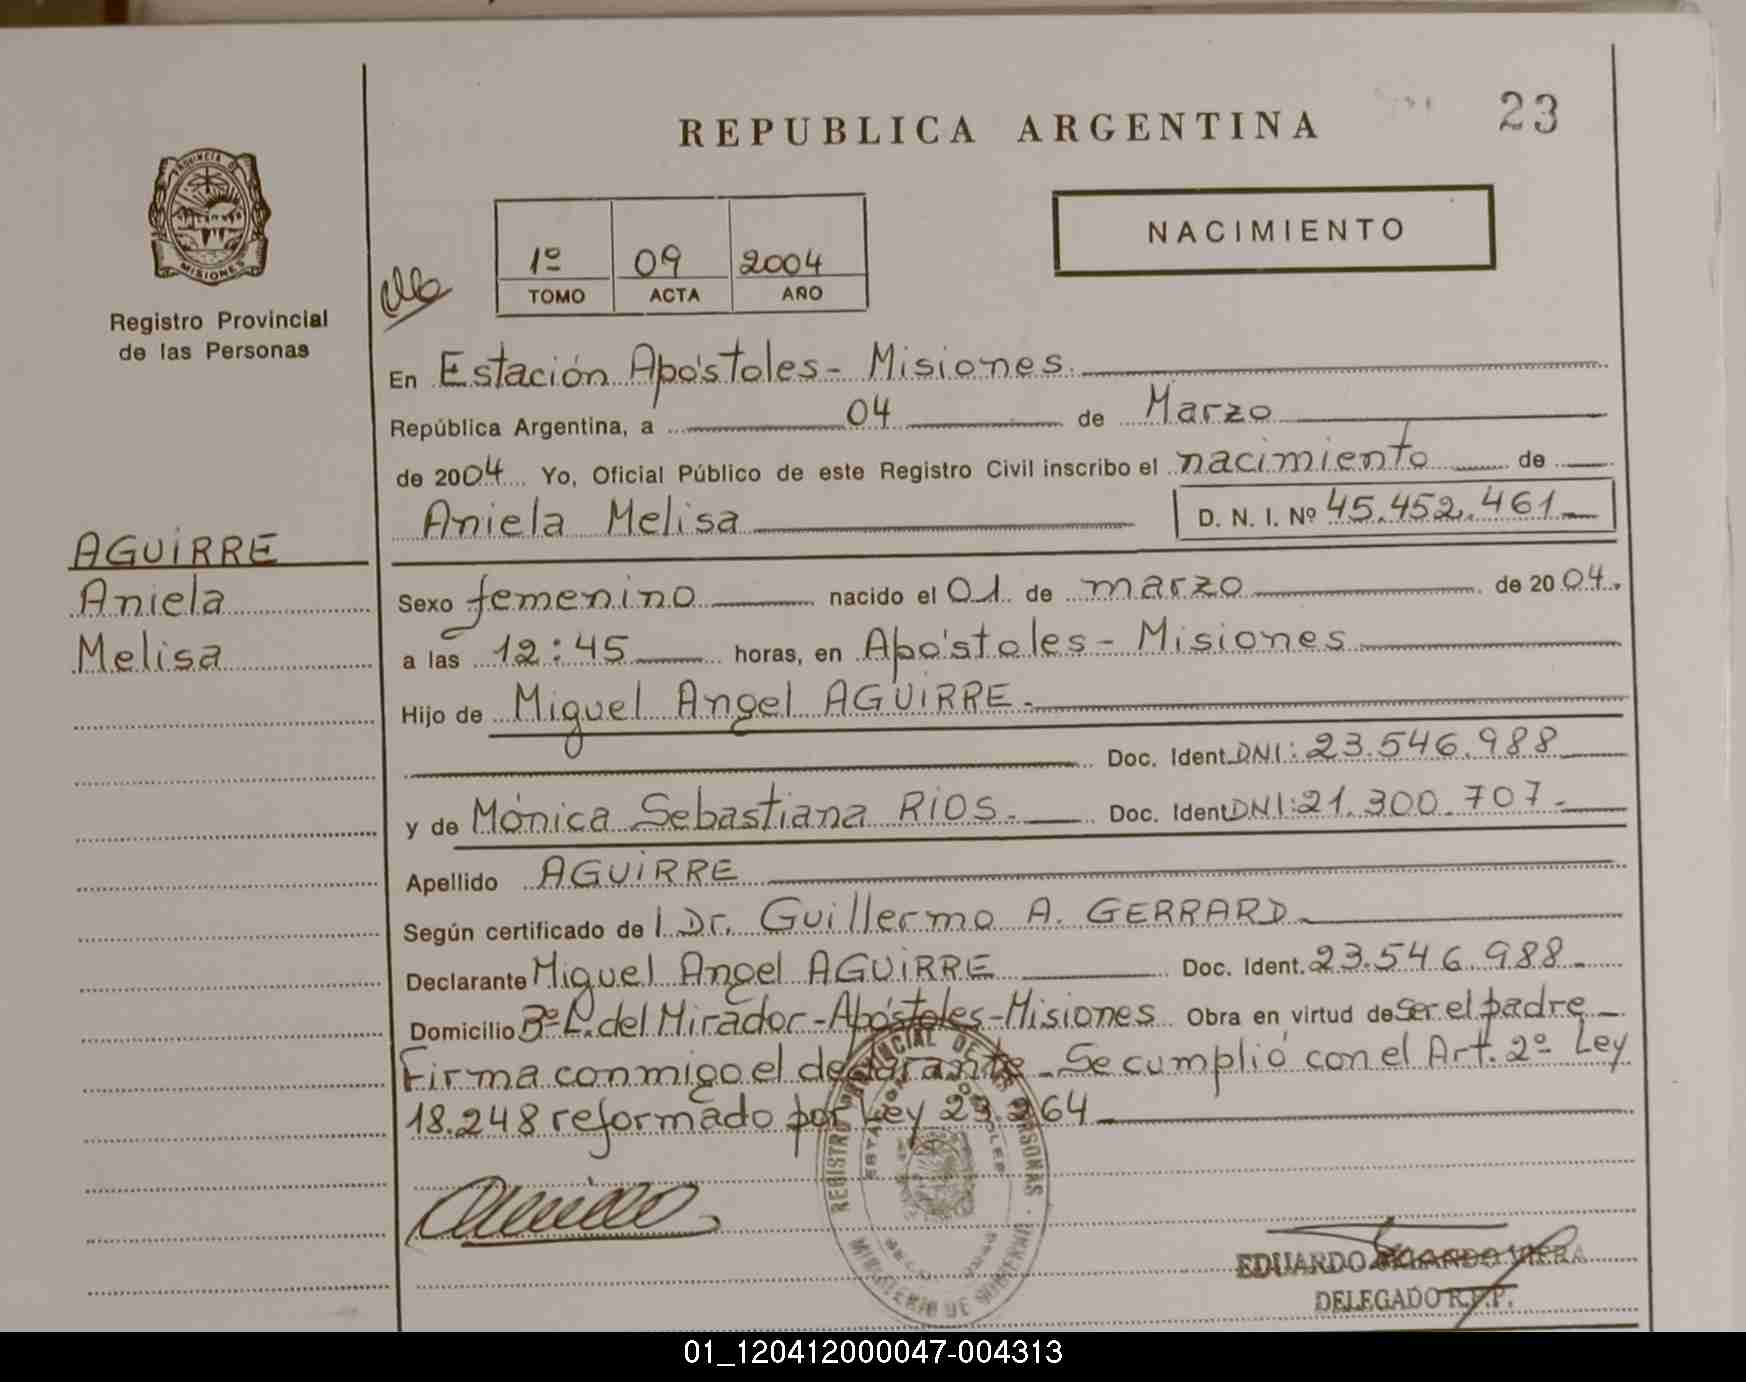 REPUBLICA ARGENTINA
23
PROVINCIA DE
MISIONES
Registro Provincial
de las Personas
1º 09 2004
TOMO ACTA AÑO
NACIMIENTO
En Estación Apóstoles - Misiones.
República Argentina, a 04 de Marzo
de 2004 Yo, Oficial Público de este Registro Civil inscribo el nacimiento de
Aniela Melisa D. N. I. Nº 45.452.461
AGUIRRE
Aniela
Melisa
Sexo femenino nacido el 01 de marzo de 2004.
a las 12:45 horas, en Apóstoles - Misiones
Hijo de Miguel Angel AGUIRRE.
Doc. Ident. DNI: 23.546.988
y de Mónica Sebastiana RIOS. Doc. Ident DNI: 21.300.707.
Apellido AGUIRRE
Según certificado de l Dr. Guillermo A. GERRARD
Declarante Miguel Angel AGUIRRE Doc. Ident. 23.546.988.
Domicilio Bº L. del Mirador - Apóstoles - Misiones Obra en virtud de ser el padre
Firma conmigo el declarante. Se cumplió con el Art. 2º Ley
18.248 reformado por Ley 23.264
REGISTRO PROVINCIAL DE LAS PERSONAS
MINISTERIO DE GOBIERNO
EDUARDO
DELEGADO R.P.P.
01_120412000047-004313